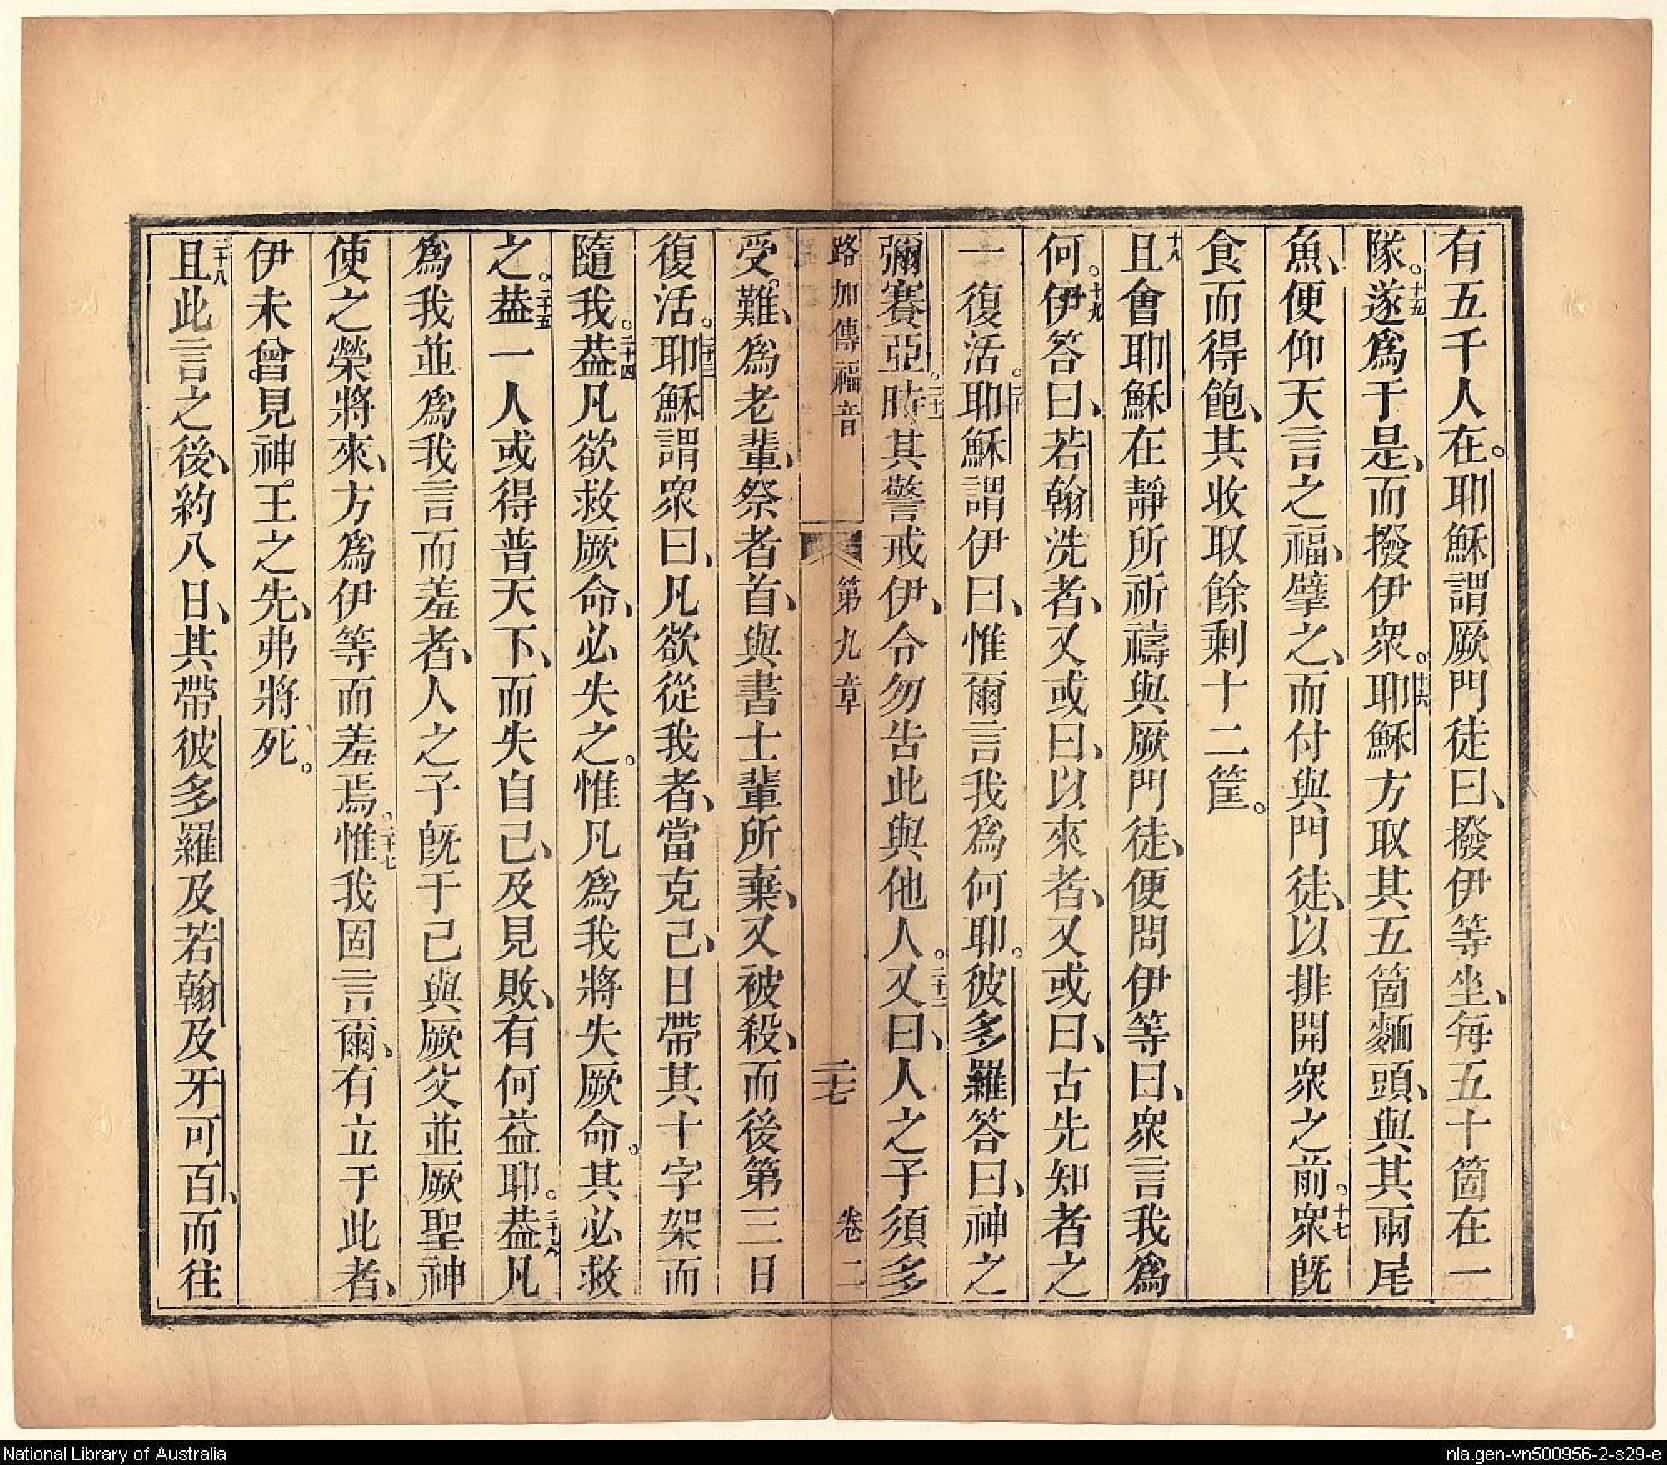 有五千人在。耶穌謂厥門徒曰、撥伊等坐、每五十箇在一
隊。十五遂爲于是、而撥伊衆。十六耶穌方取其五箇麵頭、與其兩尾
魚、便仰天言之福、擘之、而付與門徒、以排開衆之前。十七衆旣
食而得飽、其收取餘剩十二筐。
十八且會耶穌在靜所祈禱與厥門徒、便問伊等曰、衆言我爲
何。十九伊答曰、若翰洗者、又或曰、以來者、又或曰、古先知者之
一復活。二十耶穌謂伊曰、惟爾言我爲何耶。彼多羅答曰、神之
彌賽亞。二十一時其警戒伊、令勿告此與他人。二十二又曰、人之子須多
路加傳福音 第九章 二七 卷二
受難、爲老輩、祭者首、與書士輩所棄、又被殺、而後第三日
復活。二十三耶穌謂衆曰、凡欲從我者、當克己、日帶其十字架而
隨我。二十四葢凡欲救厥命、必失之。惟凡爲我將失厥命。其必救
之。二十五葢一人或得普天下、而失自己、及見敗、有何益耶。二十六葢凡
爲我並爲我言而羞者、人之子旣于己與厥父並厥聖神
使之榮將來、方爲伊等而羞焉。二十七惟我固言爾、有立于此者、
伊未曾見神王之先、弗將死。
二十八且此言之後、約八日、其帶彼多羅及若翰及牙可百、而往
National Library of Australia
nla.gen-vn500956-2-s29-e